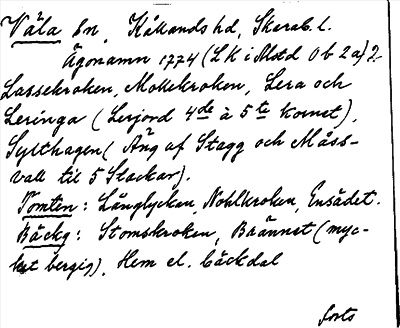 Väla by, Kållands hd, Skarab. l.
Ägonamn 1774 (LK i Mstd O b 2a) 2.
Lassekroken, Mollekroken, Lera och
Leringa (Lerjord 4de à 5te kornet),
Sylthagen (Äng af Stagg och Måss-
vall til 5 Stackar).
Tomten: Långlycken, Nohlkroken, Ensädet.
Bäckg: Stomskroken, Brännet (myc-
ket bergig), Hem el. Bäckdal
forts